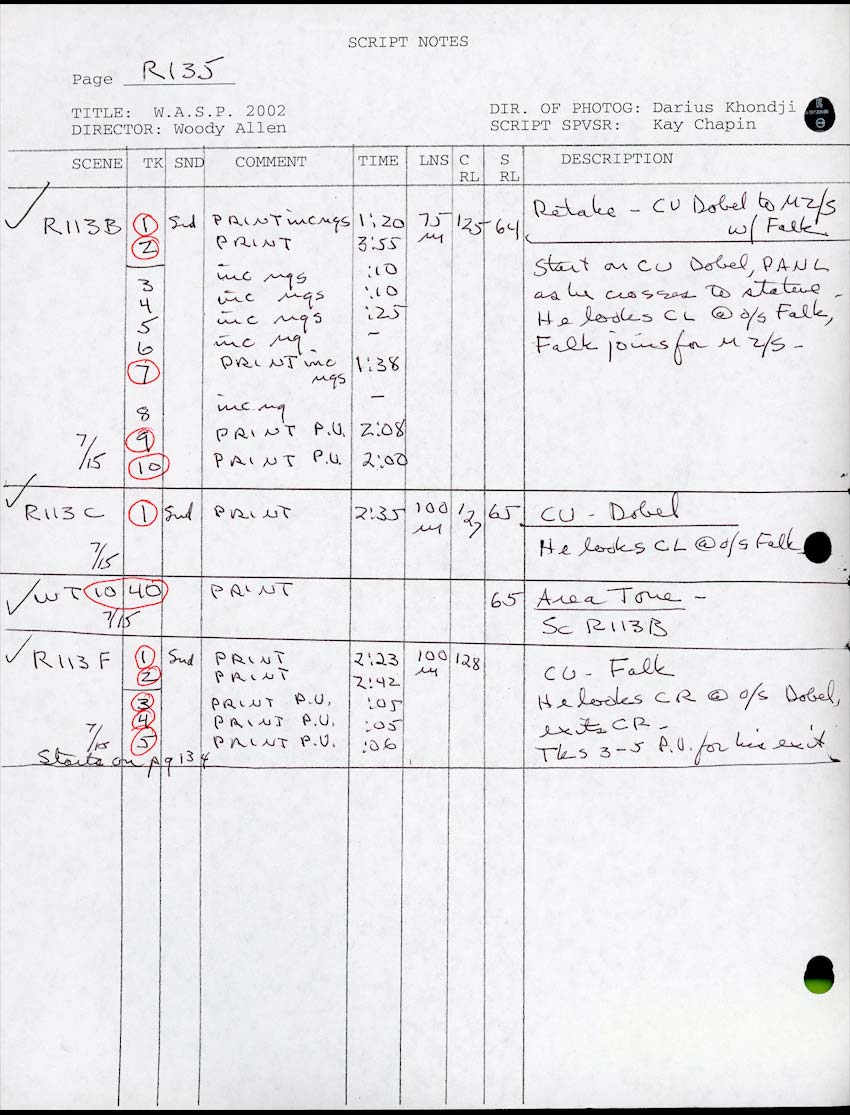 SCRIPT NOTES
Page R135
TITLE: W.A.S.P. 2002
DIRECTOR: Woody Allen
DIR. OF PHOTOG: Darius Khondji
SCRIPT SPVSR: Kay Chapin
SCENE TK SND COMMENT TIME LNS C RL S RL DESCRIPTION
R113B 1 Snd PRINT inc ngs 1:20 75 m 125 64 Retake - CU Dobel to M 2/S
w/ Falk
2 PRINT 3:55
3 inc ngs :10 Start on CU Dobel, PAN L
4 inc ngs :10 as he crosses to statue -
5 inc ngs :25 He looks CL @ o/s Falk,
6 inc ng - Falk joins for M 2/S -
7 PRINT inc ngs 1:38
8 inc ng -
9 PRINT P.U. 2:08
7/15 10 PRINT P.U. 2:00
R113C 1 Snd PRINT 2:35 100 m 127 65 CU - Dobel
7/15 He looks CL @ o/s Falk
WT 10 40 PRINT 65 Area Tone -
7/15 Sc R113B
R113F 1 Snd PRINT 2:23 100 m 128 CU - Falk
2 PRINT 2:42
3 PRINT P.U. :05 He looks CR @ o/s Dobel,
4 PRINT P.U. :05 exits CR -
7/15 5 PRINT P.U. :06 Tks 3-5 P.U. for his exit
Starts on pg 134